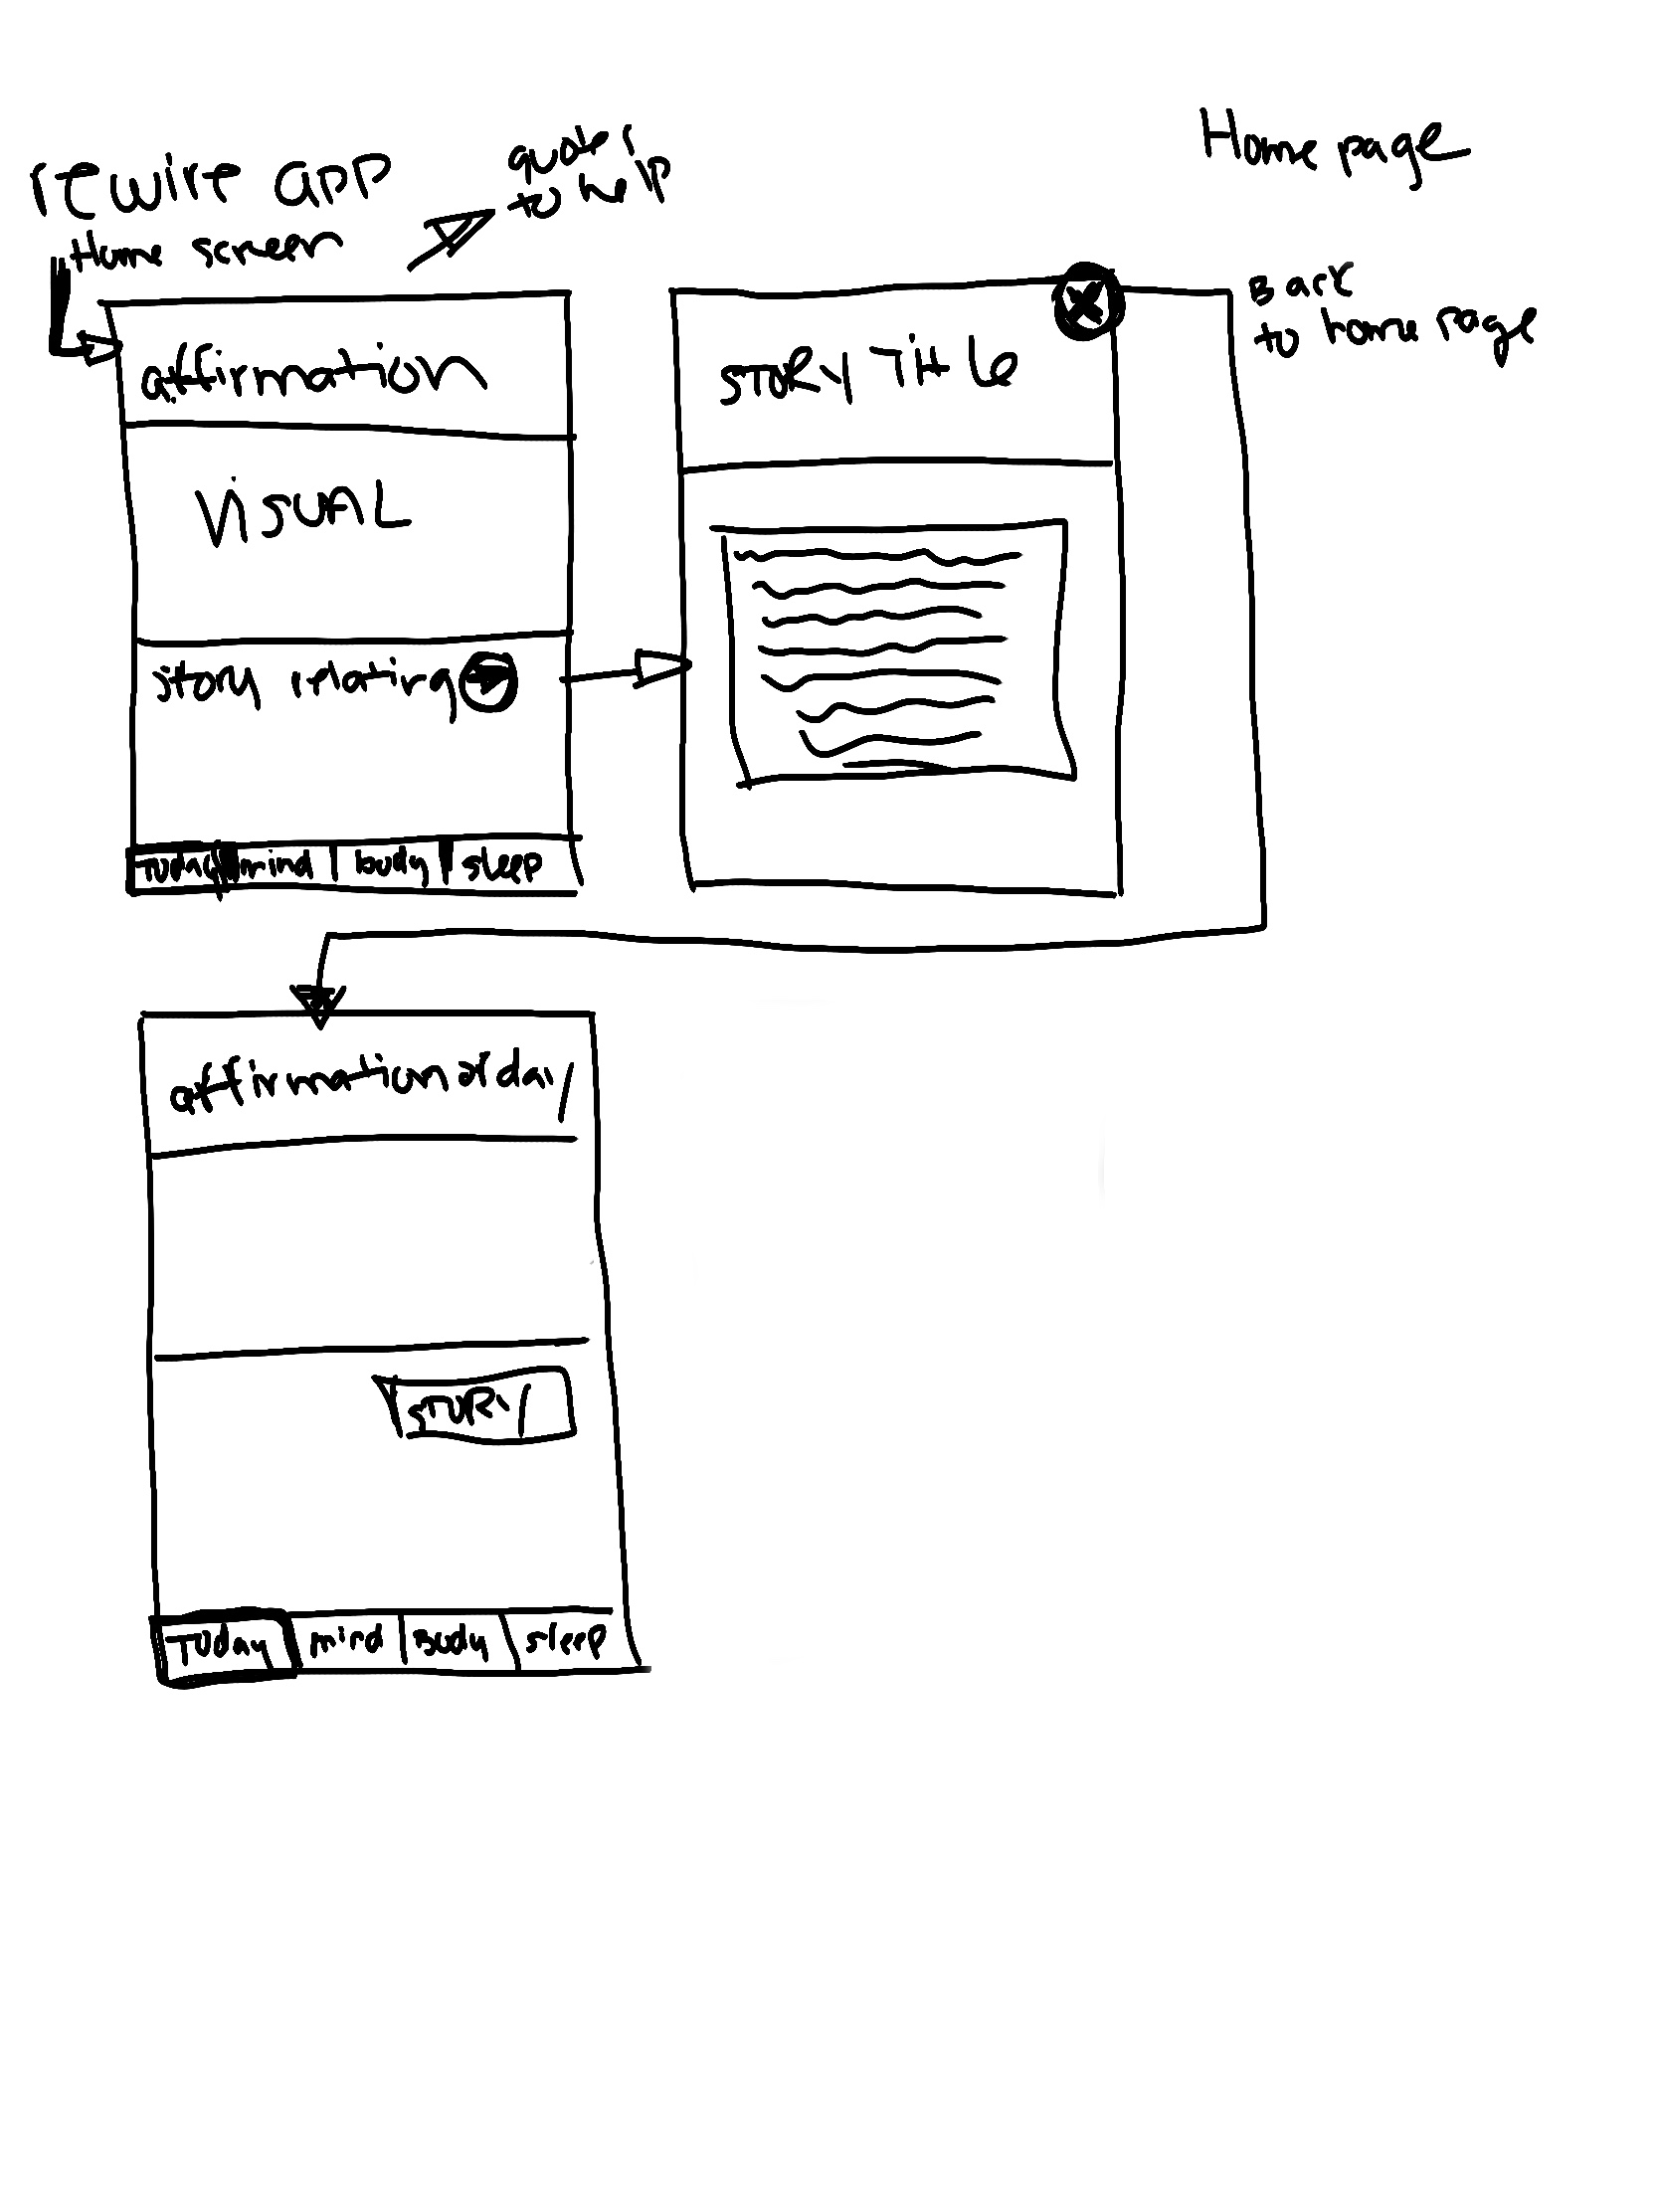 rewire app
Home screen
quotes
to help
Home page
affirmation
VISUAL
story relating
Today mind body sleep
STORY Title
Back
to home page
affirmation of day
STORY
Today mind Body sleep